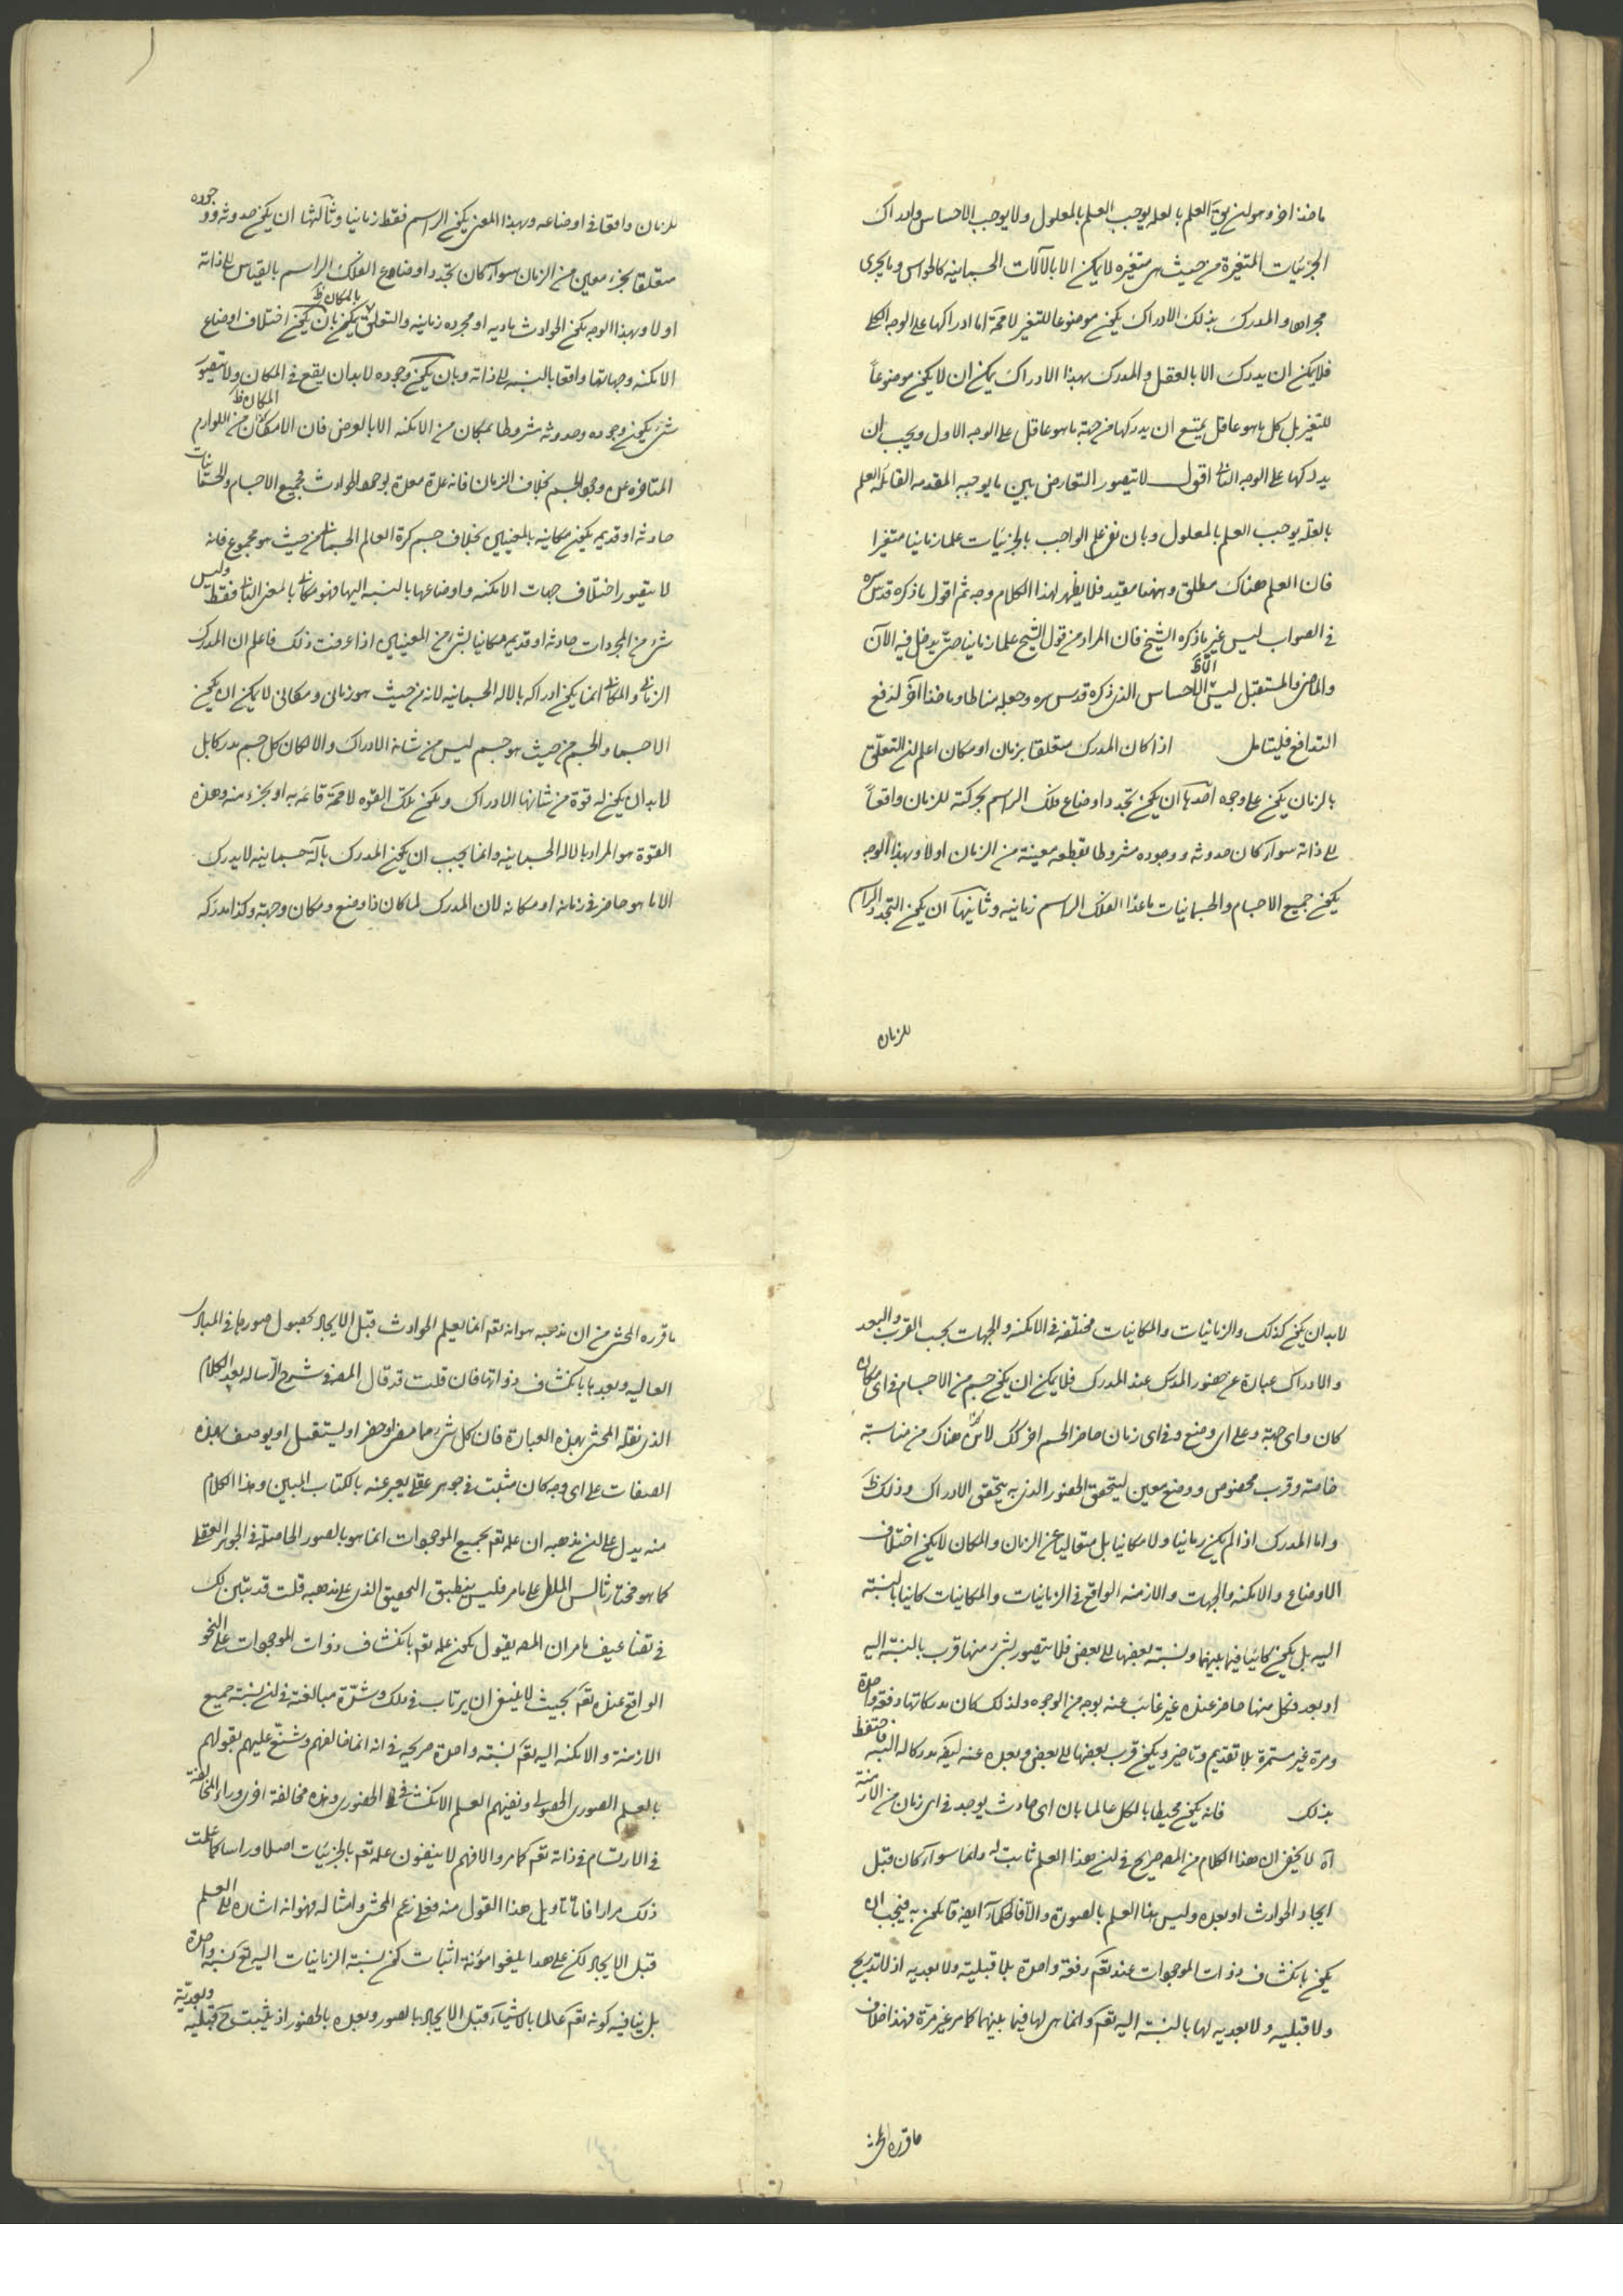 ماخذ اخر وهو ان يق العلم بالعلة يوجب العلم بالمعلول ولا يوجب الاحساس وادراك
الجزئيات المتغيرة من حيث هى متغيره لا يمكن الا بالآلات الجسمانيه كالحواس وما يجرى
مجراها والمدرك بذلك الادراك يكون موضوعا للتغير لا محة اما ادراكها على الوجه الكلى
فلا يمكن ان يدرك الا بالعقل والمدرك بهذا الادراك يمكن ان لا يكون موضوعاً
للتغير بل كل ما هو عاقل يمتنع ان يدركها من جهة ما هو عاقل على الوجه الاول ويجب ان
يدركها على الوجه الثانى اقول لا يتصور التعارض بين ما يوجبه المقدمه القائله العلم
بالعلة يوجب العلم بالمعلول وبان نفى علم الواجب بالجزئيات علما زمانيا متغيرا
فان العلم هناك مطلق وههنا مقيد فلا يظهر لهذا الكلام وجه ثم اقول ما ذكره قدس سره
فى الصواب ليس غير ما ذكره الشيخ فان المراد من قول الشيخ علما زمانيا حتى يدخل فيه الآن
والماضى والمستقبل ليس الا الاحساس الذى ذكره قدس سره وجعله مناطا وماخذا آخر لدفع
التدافع فليتامل اذا كان المدرك متعلقا بزمان او مكان اعلم ان التعلق
بالزمان يكون على وجوه احدها ان يكون تجدد اوضاع فلك الراسم بحركته للزمان واقعاً
الى ذاته سواء كان حدوثه ووجوده مشروطا بقطعه معينة من الزمان اولا وبهذا الوجه
يكون جميع الاجسام والجسمانيات ما عدا الفلك الراسم زمانيه وثانيها ان يكون التجدد الراسم
للزمان
للزمان واقعا فى اوضاعه وبهذا المعنى يكون الراسم فقط زمانيا وثالثها ان يكون حدوثه ووجوده
متعلقا بجزء معين من الزمان سواء كان تجدد اوضاع الفلك الراسم بالقياس الى ذاته
اولا وبهذا الوجه يكون الحوادث ماديه او مجرده زمانيه والتعلق بالمكان ظ يكون بان يكون اختلاف اوضاع
الامكنه وجهاتها واقعا بالنسبه الى ذاته وبان يكون وجوده لا بد ان يقع فى المكان ولا يتصور
شئ يكون وجوده وحدوثه مشروطا بمكان من الامكنه الا بالعرض فان الامكان المكان ظ من اللوازم
المتاخره عن وجود الجسم بخلاف الزمان فانه علة معدة لوجود الحوادث فجميع الاجسام والجسمانيات
حادثه او قديمه يكون مكانيه بالمعنيين بخلاف جسم كرة العالم الجسمانى من حيث هو مجموع فانه
لا يتصور اختلاف جهات الامكنه واوضاعها بالنسبه اليها فهو مكانى بالمعنى الثانى فقط وليس
شئ من المجردات حادثه او قديمه مكانيا بشئ من المعنيين اذا عرفت ذلك فاعلم ان المدرك
الزمانى والمكانى انما يكون ادراكه بالاله الجسمانيه لانه من حيث هو زمانى ومكانى لا يمكن ان يكون
الا جسما والجسم من حيث هو جسم ليس من شانه الادراك والا لكان كل جسم مدركا بل
لا بد ان يكون له قوة من شانها الادراك ويكون تلك القوه لا محة قائمه به او بجزء منه وهذه
القوة هو المراد بالاله الجسمانيه وانما يجب ان يكون المدرك بآلة جسمانيه لا يدرك
الا ما هو حاضر فى زمانه او مكانه لان المدرك لما كان ذا وضع ومكان وجهة وكذا مدركه
لا بد ان يكون كذلك والزمانيات والمكانيات مختلفه فى الامكنه والجهات بحسب القرب والبعد
والادراك عبارة عن حضور المدرك عند المدرك فلا يمكن ان يكون جسم من الاجسام فى اى مكان
كان واى جهة وعلى اى وضع وفى اى زمان حاضر الجسم اخر كك لا بد هناك من مناسبة
خاصة وقرب مخصوص ووضع معين ليتحقق الحضور الذى به يتحقق الادراك وذلك ظ
واما المدرك اذا لم يكن زمانيا ولا مكانيا بل متعاليا عن الزمان والمكان لا يكون اختلاف
الاوضاع والامكنه والجهات والازمنه الواقع فى الزمانيات والمكانيات كاينا بالنسبة
اليه بل يكون كائنا فيما بينها ونسبة بعضها الى بعض فلا يتصور لشئ منها قرب بالنسبة اليه
او بعد فكل منها حاضر عنده غير غائب عنه بوجه من الوجوه ولذلك كان مدركاتها دفعة واحدة
ومرة غير مستمرة بلا تقديم وتاخير ويكون قرب بعضها الى بعض وبعده عنه ليقه مدركا له البته فاحتفظ
بذلك فانه يكون محيطا بالكل عالما بان اى حادث يوجد فى اى زمان من الازمنة
آه لا يخفى ان هذا الكلام من المصه صريح فى ان هذا العلم ثابت له دائما سواء كان قبل
ايجاد الحوادث او بعده وليس هذا العلم بالصورة والا فالحكماء ايضه قائلون به فيجب ان
يكون بانكشاف ذوات الموجودات عنده تعم دفعة واحدة بلا قبلية ولا بعديه اذ لا تدريج
ولا قبليه ولا بعديه لها بالنسبة اليه تعم وانما هى لها فيما بينها كما مر غير مرة فهذا خلاف
ما قرره المحشى
ما قرره المحشى من ان مذهبه هو انه تعم انما يعلم الحوادث قبل الايجاد بحصول صورها فى المبادى
العاليه وبعدها بانكشاف ذواتها فان قلت قد قال المصه فى شرح الرساله بعد الكلام
الذى نقله المحشى بهذه العبارة فان كل شئ مما مضى او حضر او يستقبل او يوصف بهذه
الصفات على اى وجه كان مثبت فى جوهر عقلى يعبر عنه بالكتاب المبين وهذا الكلام
منه يدل على ان مذهبه ان علمه تعم بجميع الموجودات انما هو بالصور الحاصلة فى الجوهر العقلى
كما هو مختار ثالس الملطى على ما مر فليس ينطبق التحقيق الذى على مذهبه قلت قد تبين لك
فى تضاعيف ما مر ان المصه يقول يكون علمه تعم بانكشاف ذوات الموجودات على النحو
الواقع عنده تعم بحيث لا ينبغى ان يرتاب فى ذلك وشدة مبالغته فى ان نسبة جميع
الازمنة والامكنه اليه تعم نسبته واحدة صريحه فى انه انما خالفهم وشنع عليهم بقولهم
بالعلم الصورى الحصولى ونفيهم العلم الانكشافى الحضورى وهذه مخالفة اخرى وراء المخالفة
فى الارتسام فى ذاته تعم كما مر والا فهم لا ينفون علمه تعم بالجزئيات اصلا وراسا كما علمت
ذلك مرارا فاما تاويل هذا القول منه فعلى زعم المحشى وامثاله فهو انه اشاره الى العلم
قبل الايجاد لكن على هذا يلغوا مؤنة اثبات كون نسبة الزمانيات اليه تعم نسبة واحدة
بل ينافيه كونه تعم عالما بالاشياء قبل الايجاد بالصور وبعده بالحضور اذ يثبت ح قبلية وبعدية